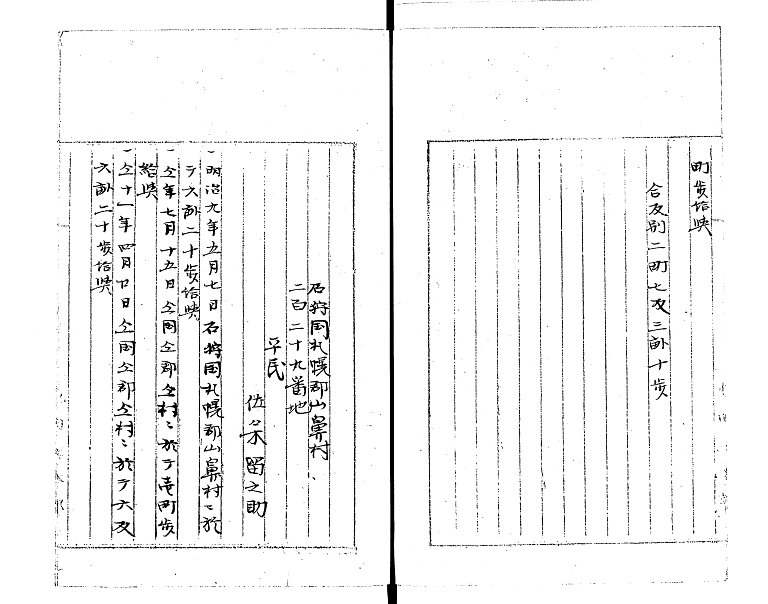 町歩給與
合反別二町七反三畝十歩
石狩国札幌郡山鼻村、
二百二十九番地
平民
佐々留之助
一明治九年五月七日石狩国札幌郡山鼻村ニ於
テ六畝二十歩給與
一仝年七月十五日仝国仝郡仝村ニ於テ壱町歩
給與
一仝十一年四月廿日仝国仝郡仝村ニ於テ六反
六畝二十歩給與